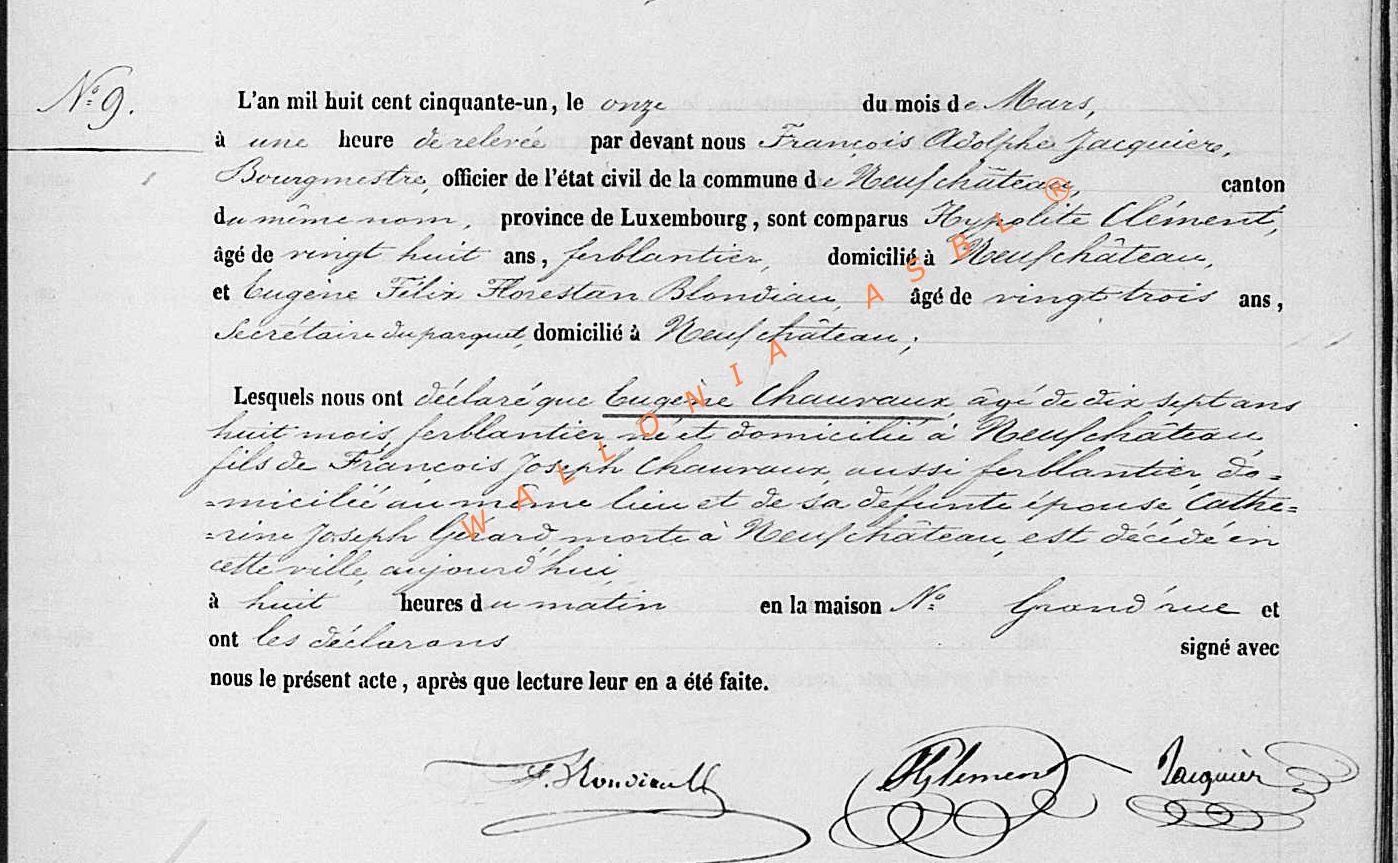 N.º 9.
L'an mil huit cent cinquante-un, le onze du mois de Mars,
à une heure de relevée par devant nous François Adolphe Jacquier,
Bourgmestre, officier de l'état civil de la commune de Neufchâteau, canton
du même nom, province de Luxembourg, sont comparus Hypolite Clément,
âgé de vingt huit ans, ferblantier, domicilié à Neufchâteau,
et Eugène Félix Florestan Blondiau, âgé de vingt trois ans,
Secrétaire du parquet, domicilié à Neufchâteau;
Lesquels nous ont déclaré que Eugène Chauvaux, âgé de dix sept ans
huit mois, ferblantier, né et domicilié à Neufchâteau,
fils de François Joseph Chauvaux, aussi ferblantier, do=
=micilié au même lieu et de sa défunte épouse Cathe=
=rine Joseph Gérard morte à Neufchâteau, est décédé en
cette ville, aujourd'hui,
à huit heures du matin en la maison N.º Grand'rue et
ont les déclarans signé avec
nous le présent acte, après que lecture leur en a été faite.
F. Blondiau HClément Jacquier
WALLONIA ASBL ®